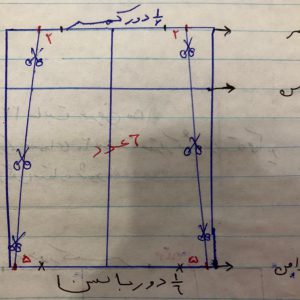 ۱/۲ دور کمر
۲
۲
۶ عدد
۵
۵
۱/۲ دور باسن